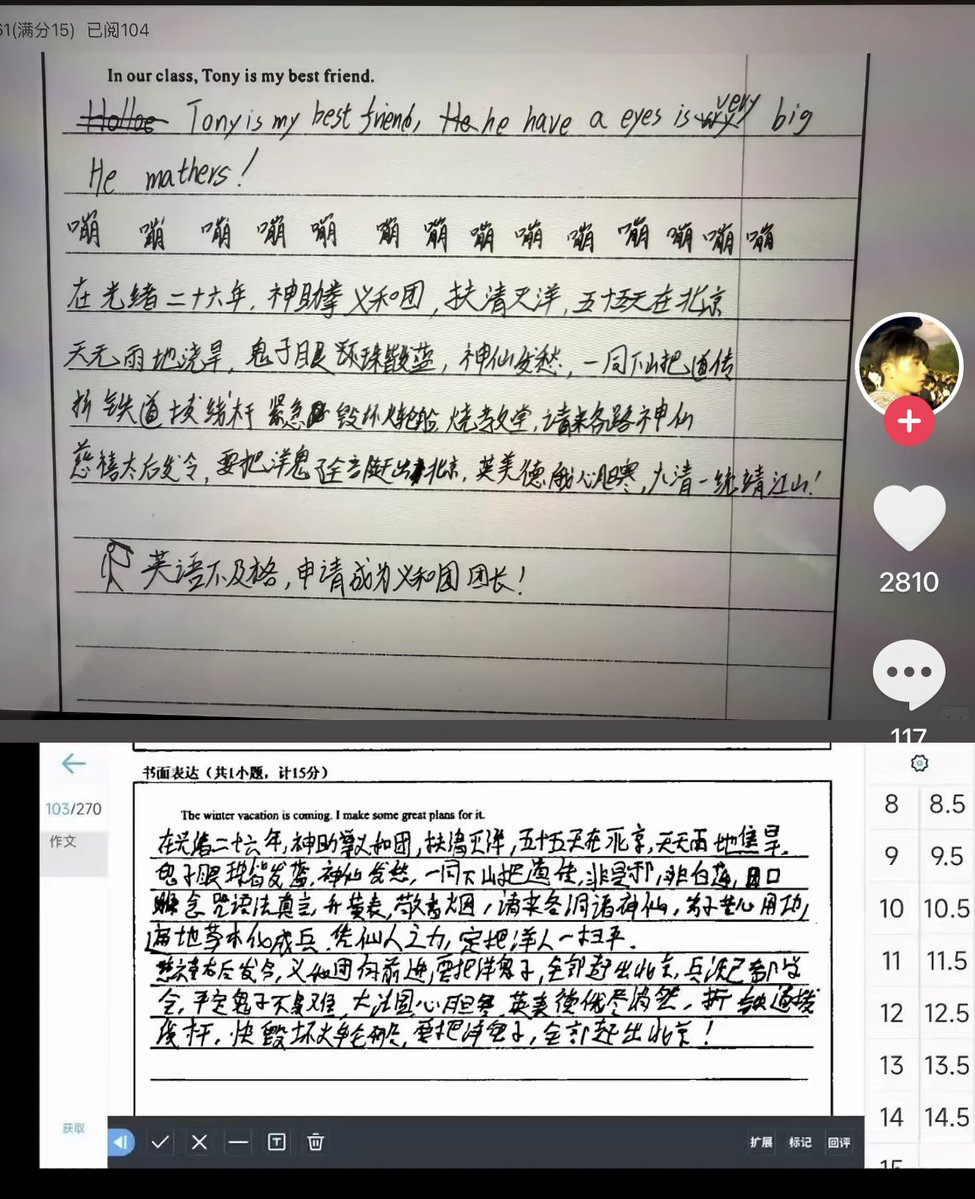 61(满分15) 已阅104
In our class, Tony is my best friend.
Tony is my best friend, he have a eyes is very big
He mathers!
嘣 嘣 嘣 嘣 嘣 嘣 嘣 嘣 嘣 嘣 嘣 嘣 嘣 嘣
在光绪二十六年,神助拳义和团,扶清灭洋,五十五天在北京
天无雨地浇旱,鬼子眼珠皆蓝,神仙发愁,一同下山把道传
拆铁道拔线杆 紧急 毁坏火轮船 烧教堂,请来各路神仙
慈禧太后发令,要把洋鬼子全部赶出北京,英美德俄心胆寒,大清一统靖江山!
英语不及格,申请成为义和团团长!
2810
117
书面表达(共1小题,计15分)
103/270
The winter vacation is coming. I make some great plans for it.
8 8.5
作文
在光绪二十六年,神助拳义和团,扶清灭洋,五十五天在北京,天无雨地焦旱.
9 9.5
鬼子眼珠皆发蓝,神仙发愁,一同下山把道传,非是邪,非白莲,口
10 10.5
念咒语法真言,升黄表,敬香烟,请来各洞诸神仙,弟子苦心用功,
遍地草木化成兵.凭仙人之力,定把洋人一扫平.
11 11.5
慈禧太后发令,义和团向前进,要把洋鬼子,全部赶出北京,兵法已都学
12 12.5
全,平定鬼子不为难,大法国心胆寒,英美德俄尽消然.拆铁道拔
线杆,快毁坏火轮船,要把洋鬼子,全部赶出北京!
13 13.5
14 14.5
15
获取
扩展 标记 回评